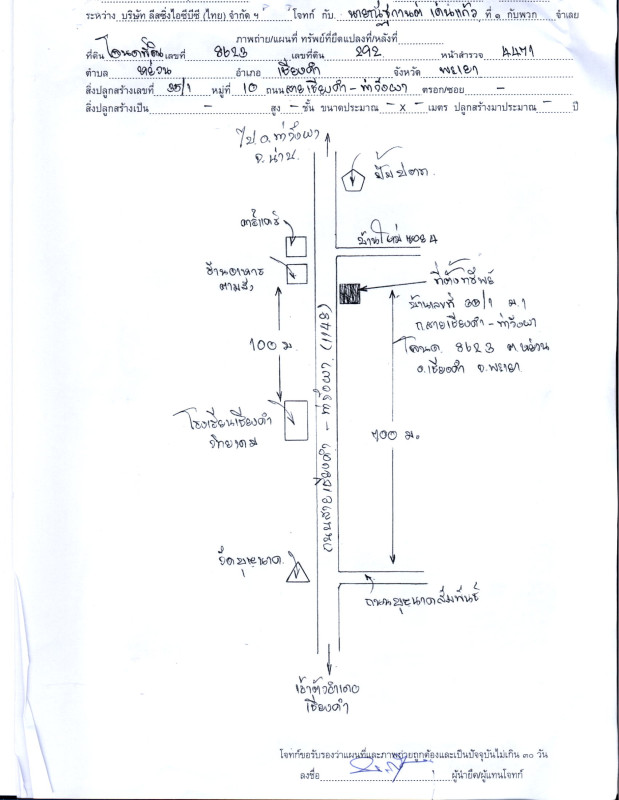 ระหว่าง บริษัท ลีสซิ่งไอซีบีซี (ไทย) จำกัด ฯ โจทก์ กับ เด่นแก้ว ที่ ๑ กับพวก จำเลย
ภาพถ่าย/แผนที่ ทรัพย์ที่ยึดแปลงที่/หลังที่
ที่ดิน โฉนดที่ดิน เลขที่ 8623 เลขที่ดิน 292 หน้าสำรวจ 4471
ตำบล หย่วน อำเภอ เชียงคำ จังหวัด พะเยา
สิ่งปลูกสร้างเลขที่ /1 หมู่ที่ 10 ถนน สายเชียงคำ - ท่าวังผา ตรอก/ซอย -
สิ่งปลูกสร้างเป็น - สูง - ชั้น ขนาดประมาณ - x - เมตร ปลูกสร้างมาประมาณ - ปี
ไป อ.ท่าวังผา
จ.น่าน
ปั๊ม ปตท.
คาร์แคร์
บ้านใหม่ ซอย 4
ร้านอาหาร
ตามสั่ง
ที่ตั้งทรัพย์
บ้านเลขที่ /1 ม.1
ถ.สายเชียงคำ - ท่าวังผา
โฉนด 8623 ต.หย่วน
อ.เชียงคำ จ.พะเยา
100 ม.
ถนนสายเชียงคำ - ท่าวังผา (1148)
โรงเรียนเชียงคำ
วิทยาคม
700 ม.
วัดบุญนาค
ถนนบุญนาคสัมพันธ์
เข้าตัวอำเภอ
เชียงคำ
โจทก์ขอรับรองว่าแผนที่และภาพถ่ายถูกต้องและเป็นปัจจุบันไม่เกิน ๓๐ วัน
ลงชื่อ ผู้นำยึด/ผู้แทนโจทก์